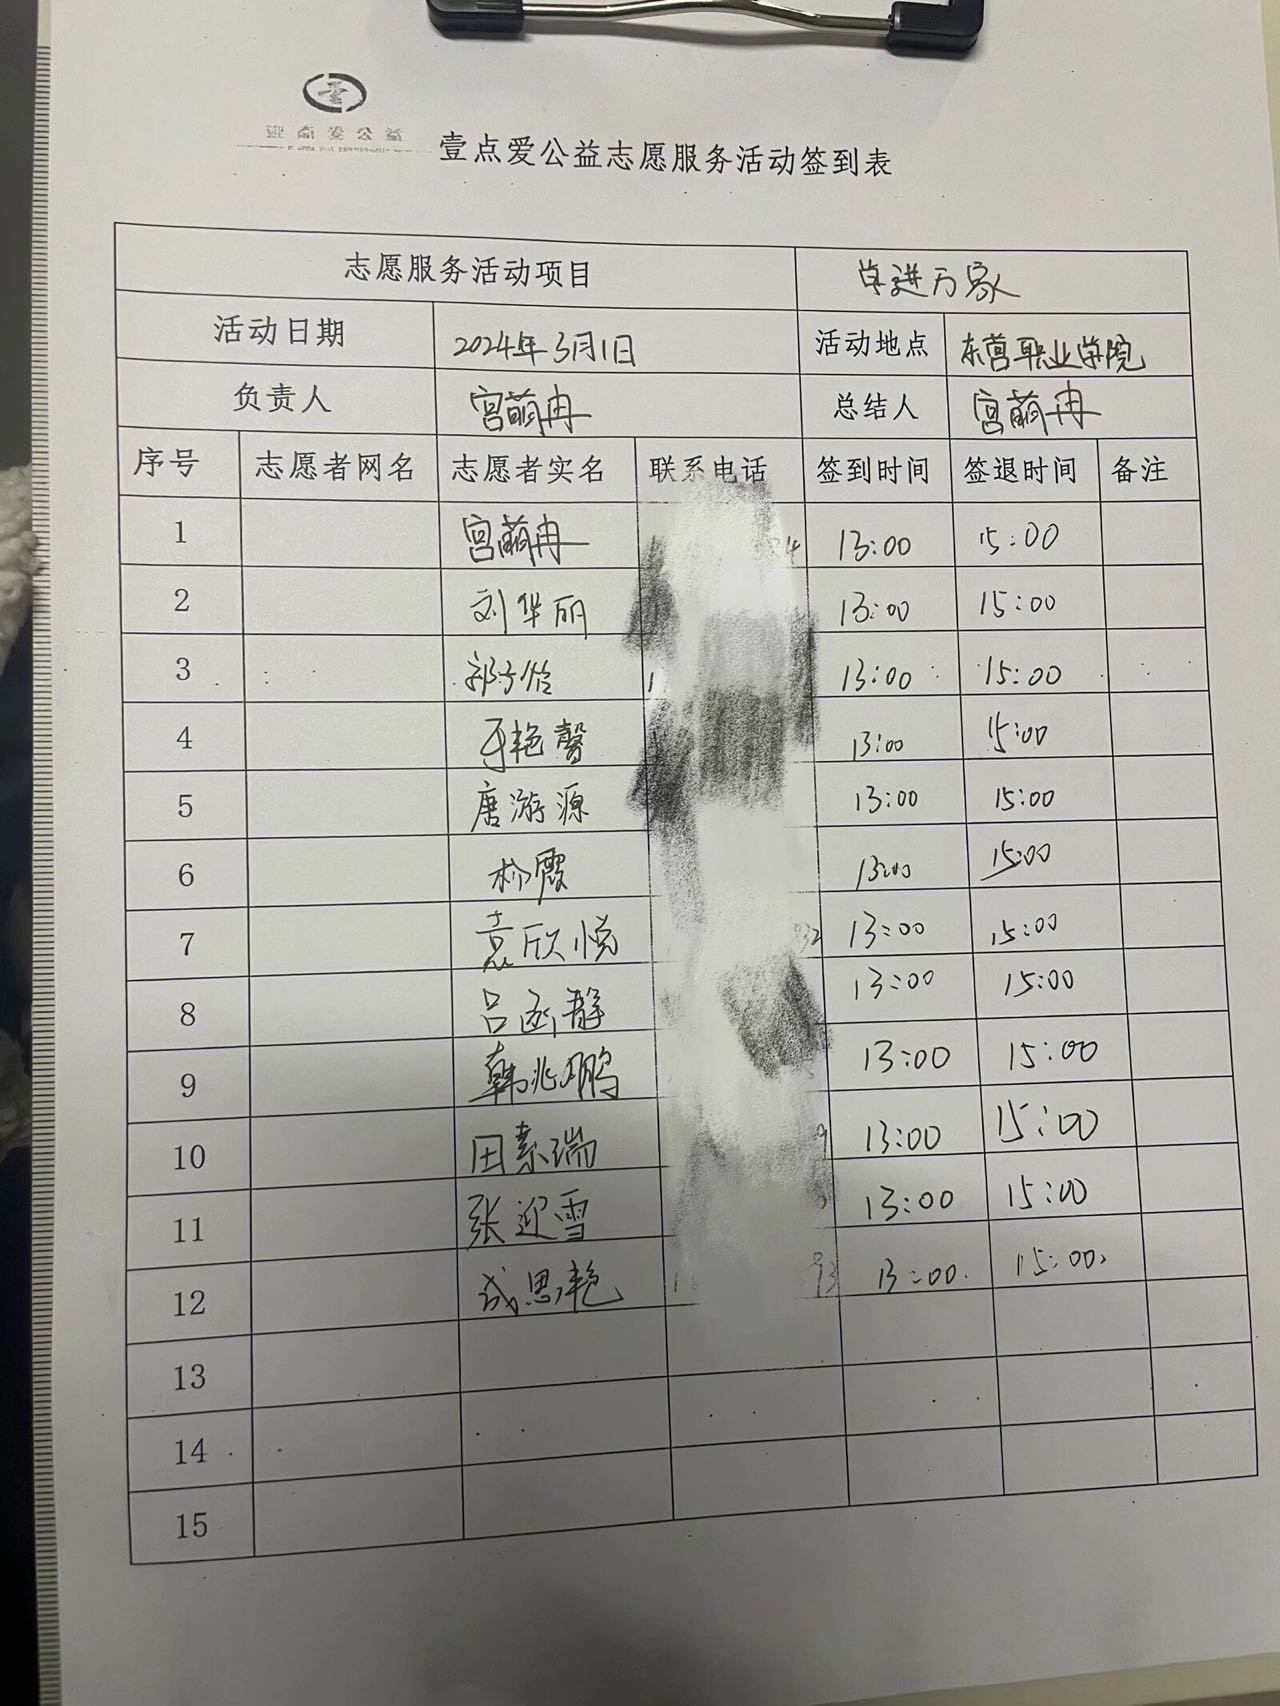 壹点爱公益
壹点爱公益志愿服务活动签到表
志愿服务活动项目 阜进万家
活动日期 2024年3月1日 活动地点 东营职业学院
负责人 宫萌冉 总结人 宫萌冉
序号 志愿者网名 志愿者实名 联系电话 签到时间 签退时间 备注
1 宫萌冉 13:00 15:00
2 刘华丽 13:00 15:00
3 13:00 15:00
4 于艳馨 13:00 15:00
5 唐游源 13:00 15:00
6 杨霞 13:00 15:00
7 袁欣悦 32 13:00 15:00
8 吕函静 13:00 15:00
9 韩兆鹏 13:00 15:00
10 田素瑞 9 13:00 15:00
11 张迎雪 13:00 15:00
12 成思艳 93 13:00 15:00
13
14
15